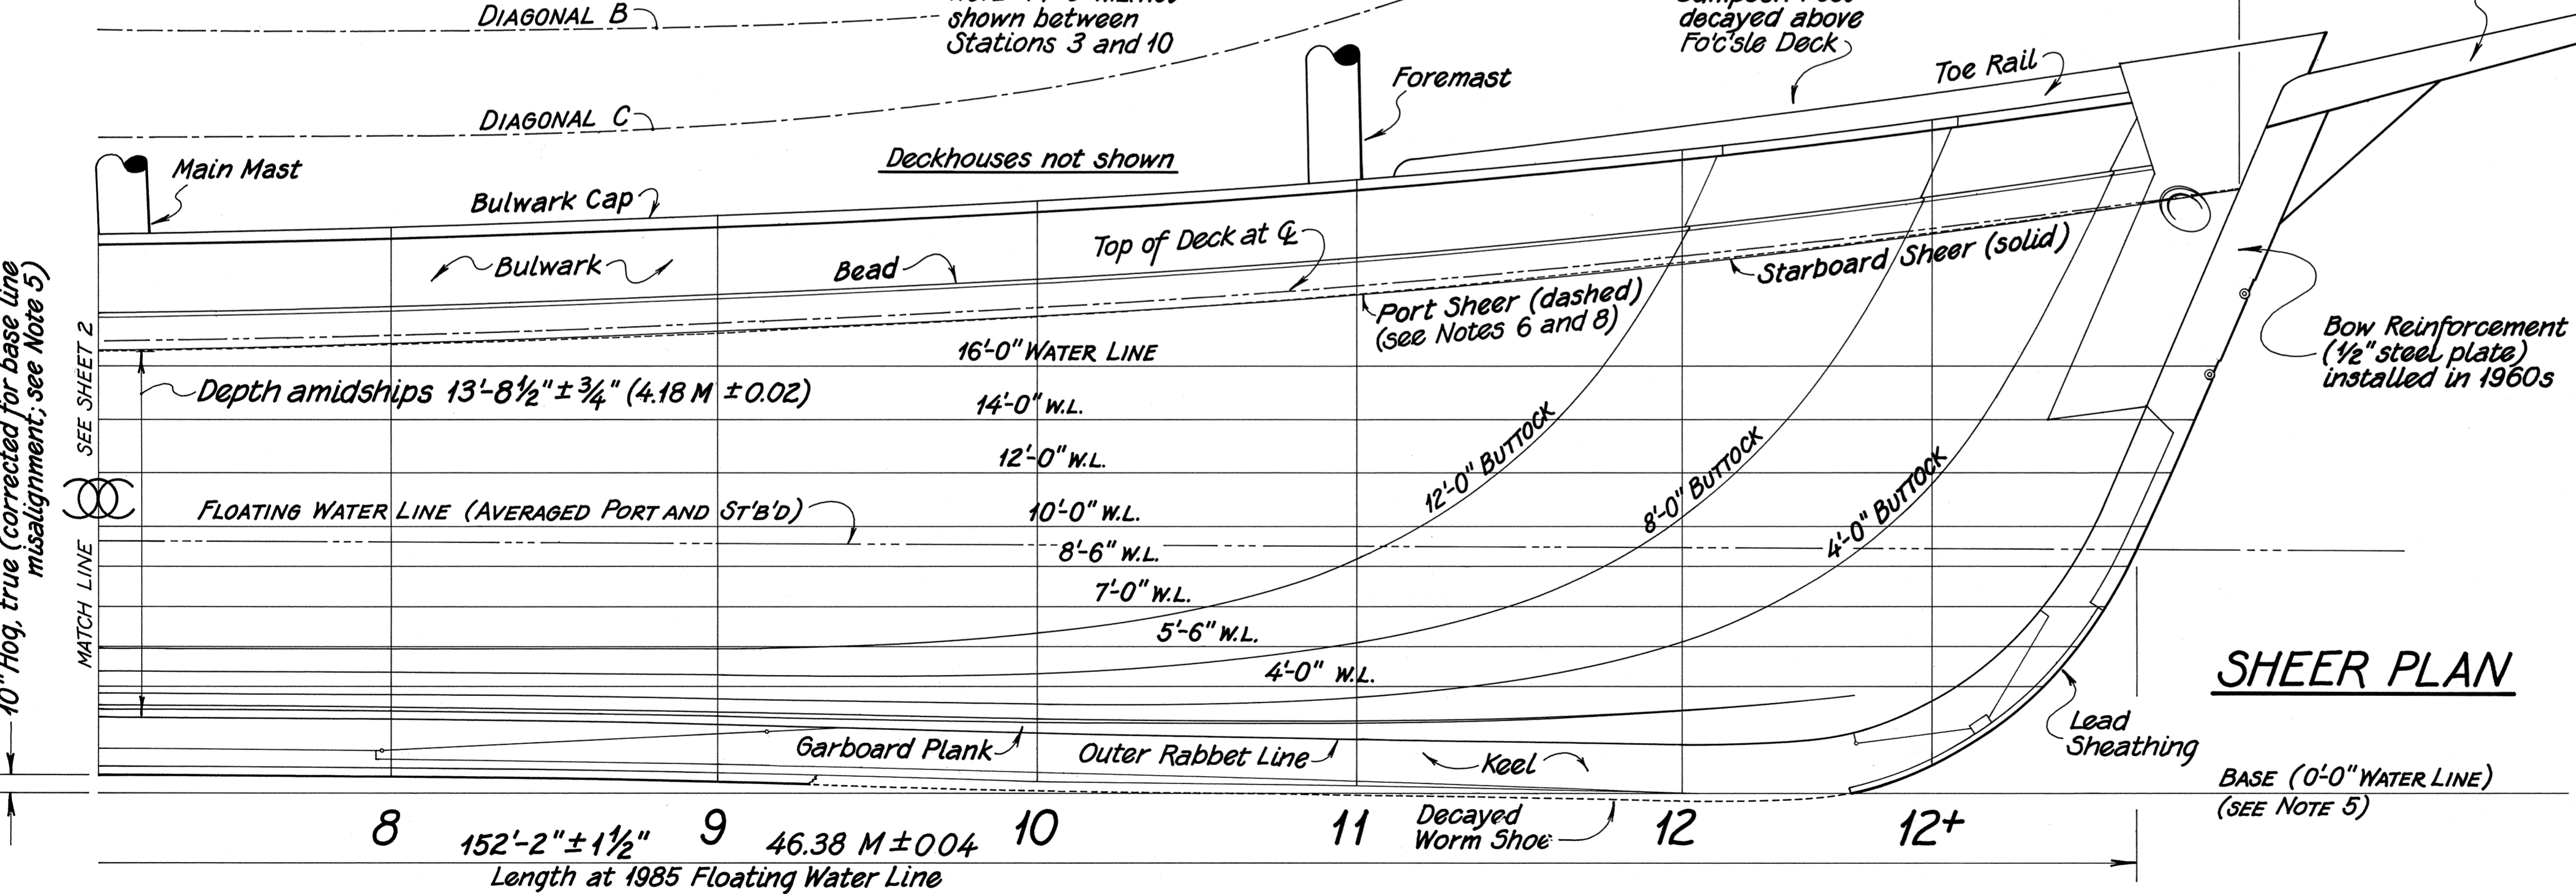 DIAGONAL B
shown between
Stations 3 and 10
decayed above
Fo'c'sle Deck
Toe Rail
Foremast
DIAGONAL C
Main Mast
Deckhouses not shown
Bulwark Cap
Top of Deck at ℄
Bulwark
Bead
Starboard Sheer (solid)
Port Sheer (dashed)
(see Notes 6 and 8)
Bow Reinforcement
(1/2" steel plate)
installed in 1960s
10" Hog, true (corrected for base line
misalignment; see Note 5)
MATCH LINE SEE SHEET 2
16'-0" WATER LINE
Depth amidships 13'-8 1/2" ± 3/4" (4.18 M ± 0.02)
14'-0" W.L.
12'-0" W.L.
FLOATING WATER LINE (AVERAGED PORT AND ST'B'D)
10'-0" W.L.
8'-6" W.L.
7'-0" W.L.
5'-6" W.L.
4'-0" W.L.
12'-0" BUTTOCK
8'-0" BUTTOCK
4'-0" BUTTOCK
SHEER PLAN
Garboard Plank
Outer Rabbet Line
Keel
Lead
Sheathing
BASE (0'-0" WATER LINE)
(SEE NOTE 5)
Decayed
Worm Shoe
8 9 10 11 12 12+
152'-2" ± 1 1/2" 46.38 M ± 004
Length at 1985 Floating Water Line